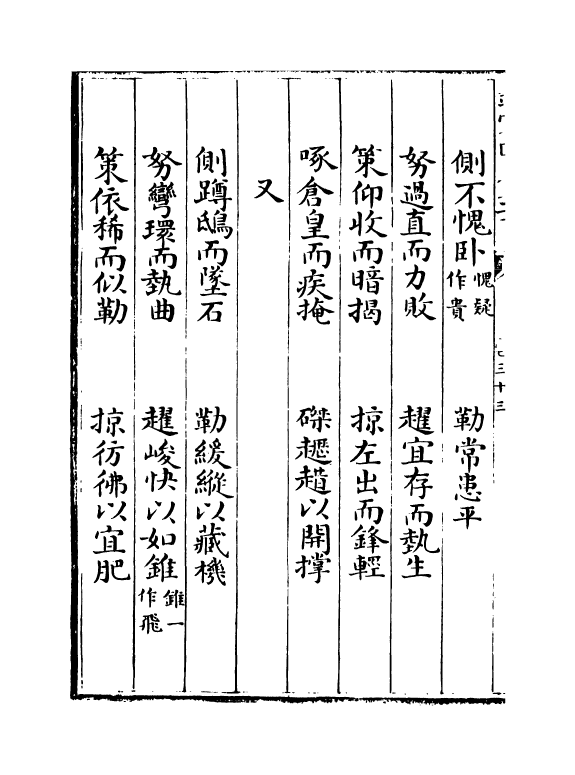 側不愧卧愧疑作貴　勒常患平
努過直而力敗　趯宜存而埶生
策仰收而暗揭　掠左出而鋒輕
啄倉皇而疾掩　磔趑趄以開撑
又
側蹲鴟而墜石　勒緩縱以藏機
努彎環而埶曲　趯峻快以如錐錐一作飛
策依稀而似勒　掠彷彿以宜肥